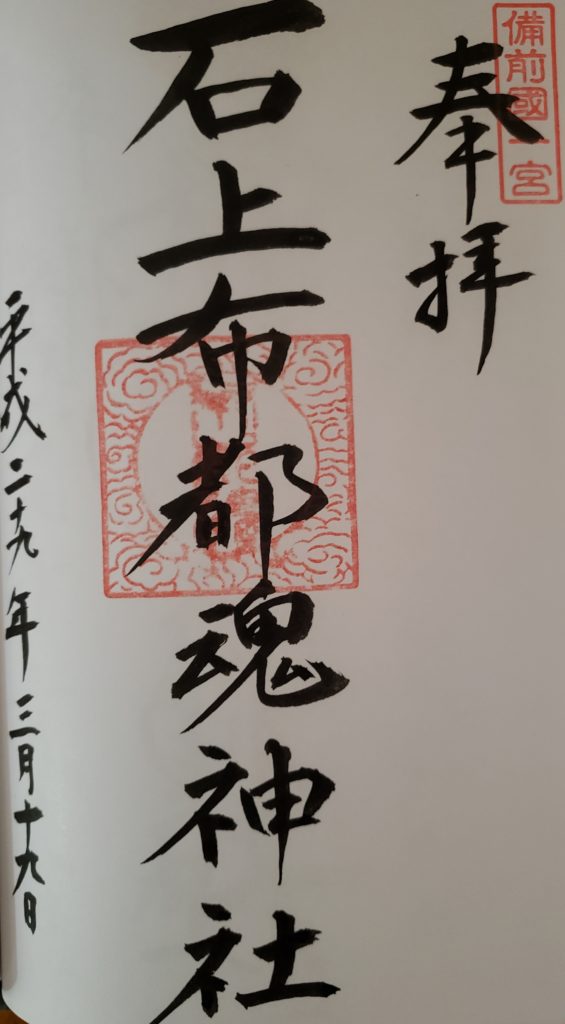 備前國一宮
奉拝
石上布都魂神社
平成二十九年三月十九日